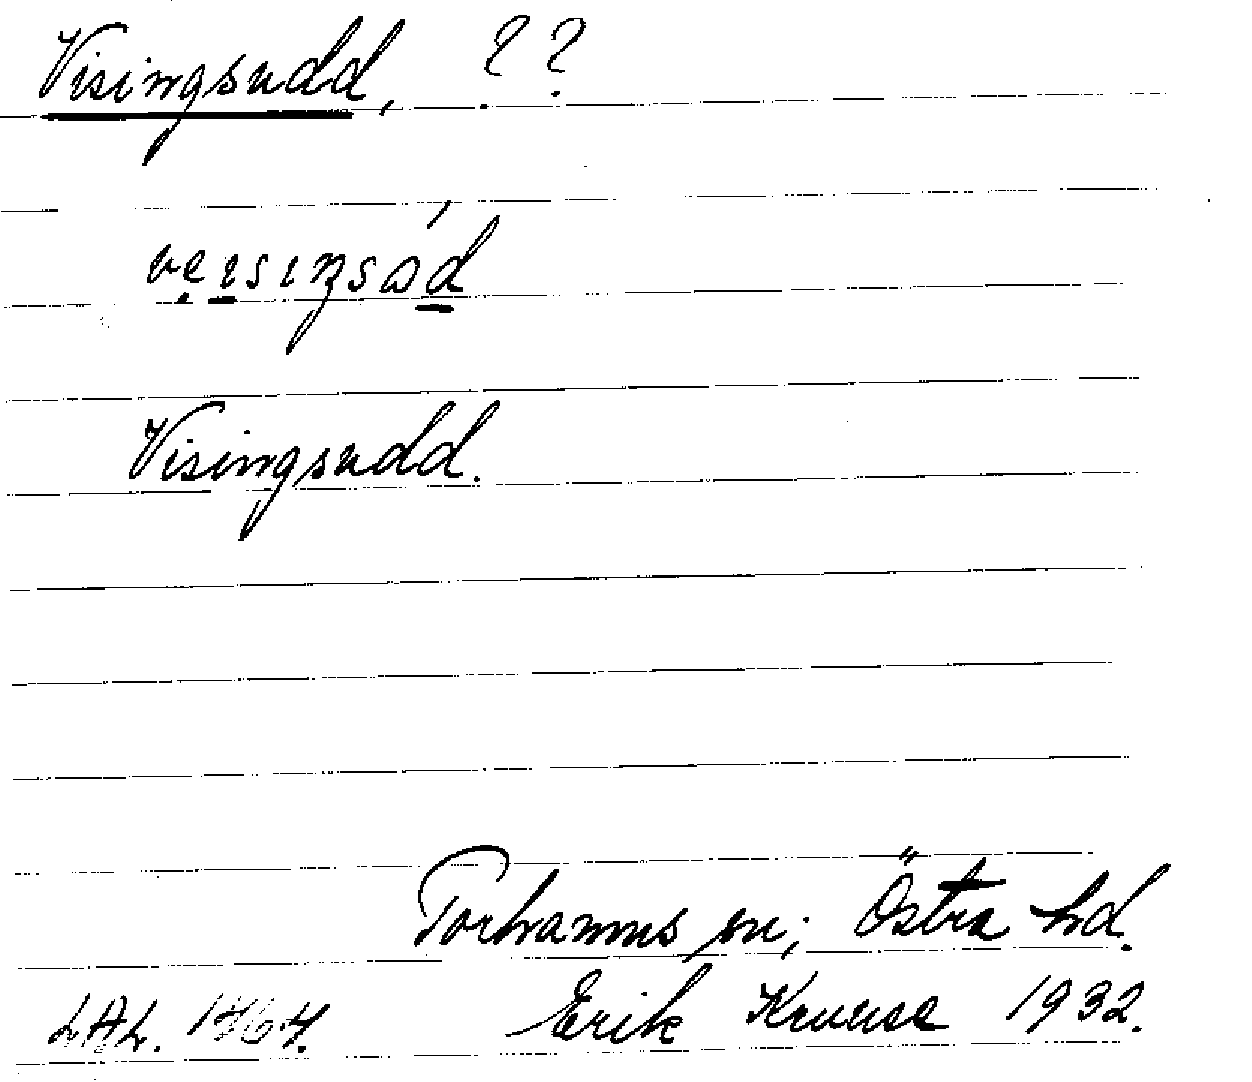 Visingsudd, ??
vẹısıŋsɷ́d
Visingsudd.
Torhamns sn; Östra hd.
LAL. 1767. Erik Kruuse 1932.